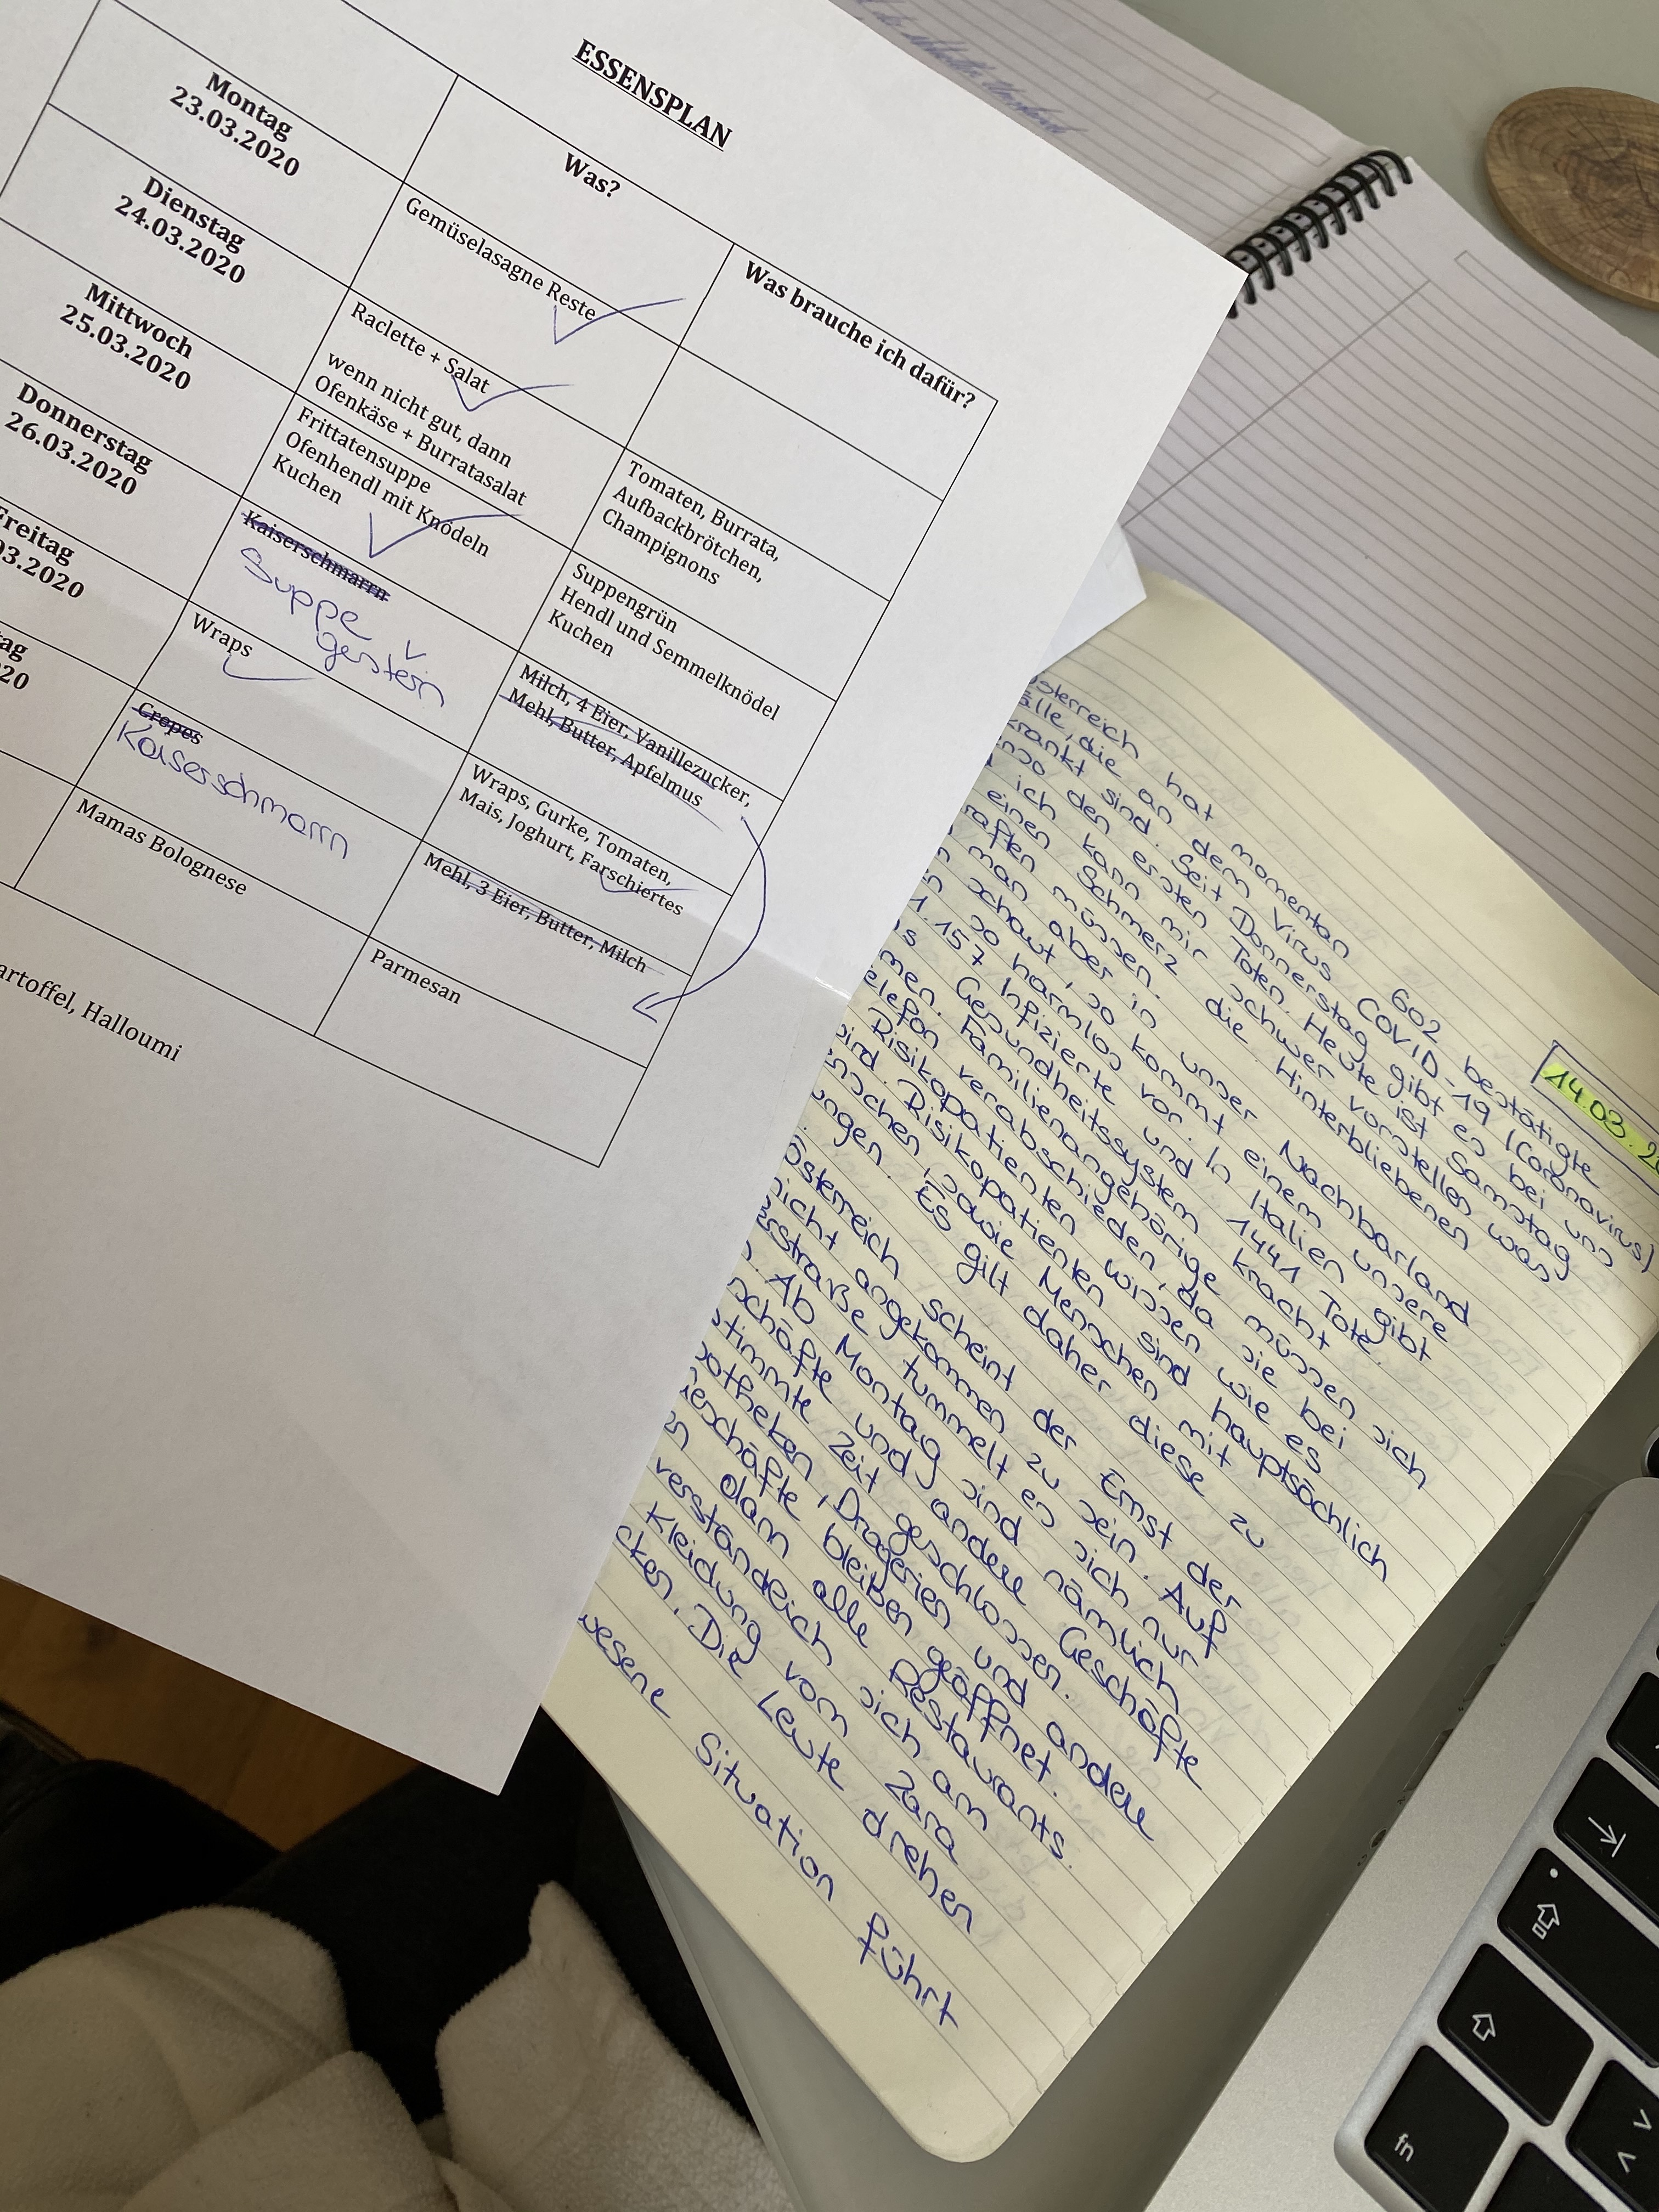 ESSENSPLAN
Was?
Was brauche ich dafür?
Montag
23.03.2020
Gemüselasagne Reste
Dienstag
24.03.2020
Raclette + Salat
wenn nicht gut, dann
Ofenkäse + Burratasalat
Tomaten, Burrata,
Aufbackbrötchen,
Champignons
Mittwoch
25.03.2020
Frittatensuppe
Ofenhendl mit Knödeln
Kuchen
Suppengrün
Hendl und Semmelknödel
Kuchen
Donnerstag
26.03.2020
Kaiserschmarrn
Suppe
gestern
Milch, 4 Eier, Vanillezucker,
Mehl, Butter, Apfelmus
Freitag
03.2020
Wraps
Wraps, Gurke, Tomaten,
Mais, Joghurt, Farschiertes
tag
20
Crepes
Kaiserschmarrn
Mehl, 3 Eier, Butter, Milch
Mamas Bolognese
Parmesan
artoffel, Halloumi
14.03.20
Österreich hat momentan 602 bestätigte
älle, die an dem Virus COVID-19 (Coronavirus)
krankt sind. Seit Donnerstag gibt es bei uns
den ersten Toten. Heute ist Samstag
ich kann mir schwer vorstellen was
einen Schmerz die Hinterbliebenen
raften müssen.
man aber in unser Nachbarland
schaut, so kommt einem unsere
so harmlos vor. In Italien gibt
1.157 Infizierte und 1441 Tote.
s Gesundheitssystem kracht
men. Familienangehörige müssen sich
elefon verabschieden, da sie bei
Risikopatienten wissen wie es
ird. Risikopatienten sind hauptsächlich
enschen, sowie Menschen mit
ungen. Es gilt daher diese zu
Österreich scheint der Ernst der
nicht angekommen zu sein. Auf
erstraße tummelt es sich nur
. Ab Montag sind nämlich
schäfte und andere Geschäfte
stimmte Zeit geschlossen.
otheken, Drogerien und andere
eschäfte bleiben geöffnet.
en dann alle Restaurants.
verständlich sich am
Kleidung von Zara
cken. Die Leute drehen
wesene Situation führt
fn